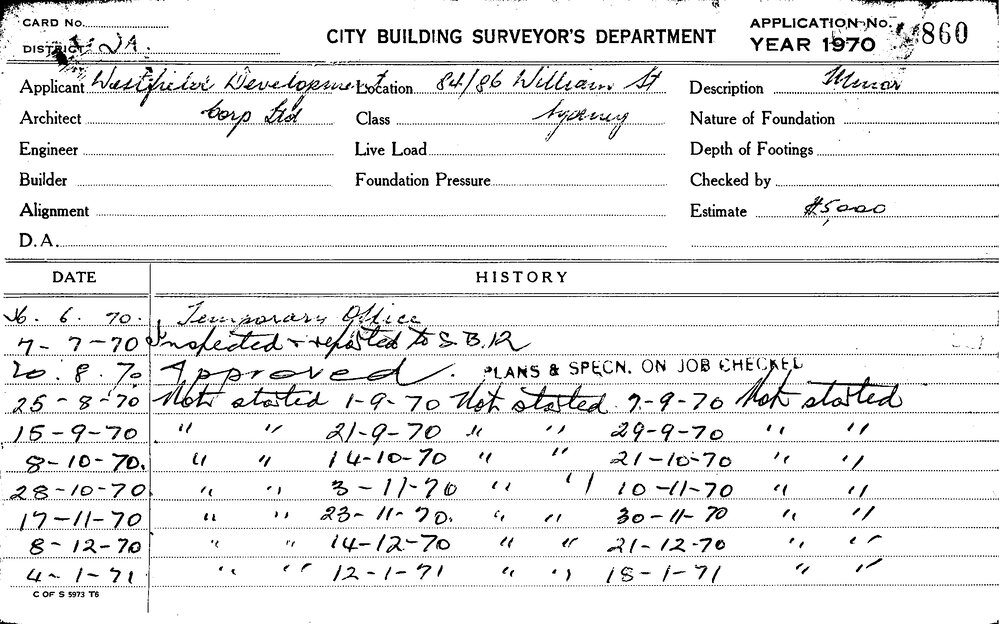 CARD No.
CITY BUILDING SURVEYOR'S DEPARTMENT
APPLICATION No. 860
DISTRICT
YEAR 1970
Applicant Westfield Development Location 84/86 William St Description Minor
Architect Corp Ltd Class Sydney Nature of Foundation
Engineer Live Load Depth of Footings
Builder Foundation Pressure Checked by
Alignment Estimate $5,000
D.A.
DATE HISTORY
26. 6. 70. Temporary Office
7-7-70 Inspected & reported to S.B.
20. 8. 70 Approved. PLANS & SPECN. ON JOB CHECKED
25-8-70 Not started 1-9-70 Not started 7-9-70 Not started
15-9-70 " " 21-9-70 " " 29-9-70 " "
8-10-70. " " 14-10-70 " " 21-10-70 " "
28-10-70 " " 3-11-70 " " 10-11-70 " "
17-11-70 " " 23-11-70. " " 30-11-70 " "
8-12-70 " " 14-12-70 " " 21-12-70 " "
4-1-71 " " 12-1-71 " " 18-1-71 " "
C OF S 5973 T6